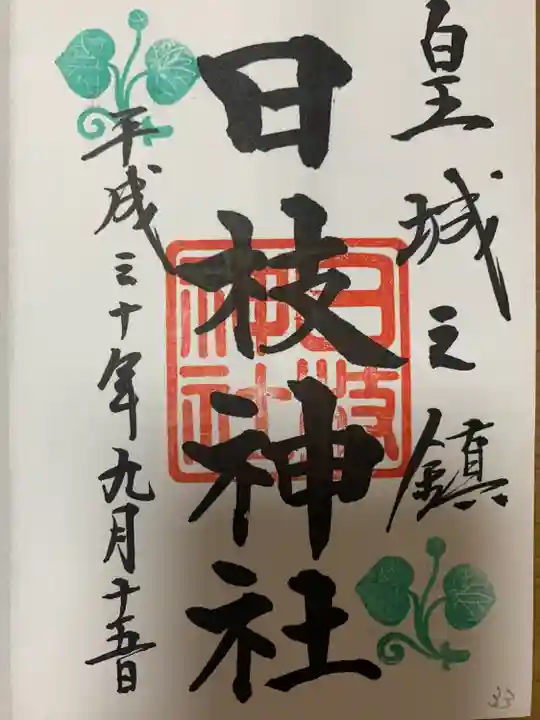 皇城之鎮
日枝神社
日枝
神社
平成三十年九月十五日
33